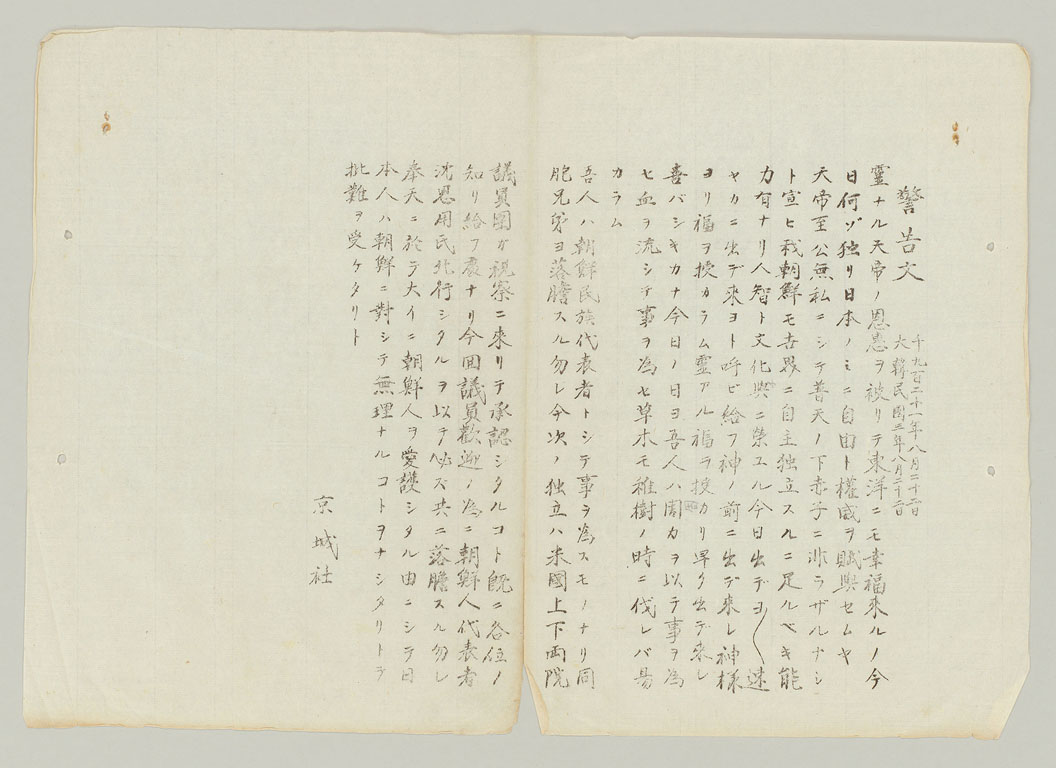 警告文
千九百二十一年八月二十二日
大韓民國三年八月二十二日
靈ナル天帝ノ恩惠ヲ被リテ東洋ニモ幸福來ルノ今
日何ゾ独リ日本ノミニ自由ト權威ヲ賦與セムヤ
天帝至公無私ニシテ普天ノ下赤子ニ非ラザルナシ
ト宣ヒ我朝鮮モ世界ニ自主独立スルニ足ルベキ能
力有ナリ人智ト文化與ニ榮ユル今日出デヨ〱速
ヤカニ出デ來ヨト呼ビ給フ神ノ前ニ出デ來レ神様
ヨリ福ヲ授カラム靈アル福ヲ授カリ早ク出デ來レ
喜バシキカナ今日ノ日ヨ吾人ハ團カヲ以テ事ヲ為
セ血ヲ流シテ事ヲ為セ草木モ稚樹ノ時ニ伐レバ易
カラム
吾人ハ朝鮮民族代表者トシテ事ヲ為スモノナリ同
胞兄弟ヨ落膽スル勿レ今次ノ独立ハ米國上下両院
議員團ガ視察ニ來リテ承認シタルコト既ニ各位ノ
知リ給フ處ナリ今回議員歡迎ノ為ニ朝鮮人代表者
沈恩用氏北行シタルヲ以テ必ズ共ニ落膽スル勿レ
奉天ニ於テ大イニ朝鮮人ヲ愛護シタル由ニシテ日
本人ハ朝鮮ニ對シテ無理ナルコトヲナシタリトテ
批難ヲ受ケタリト
京城社